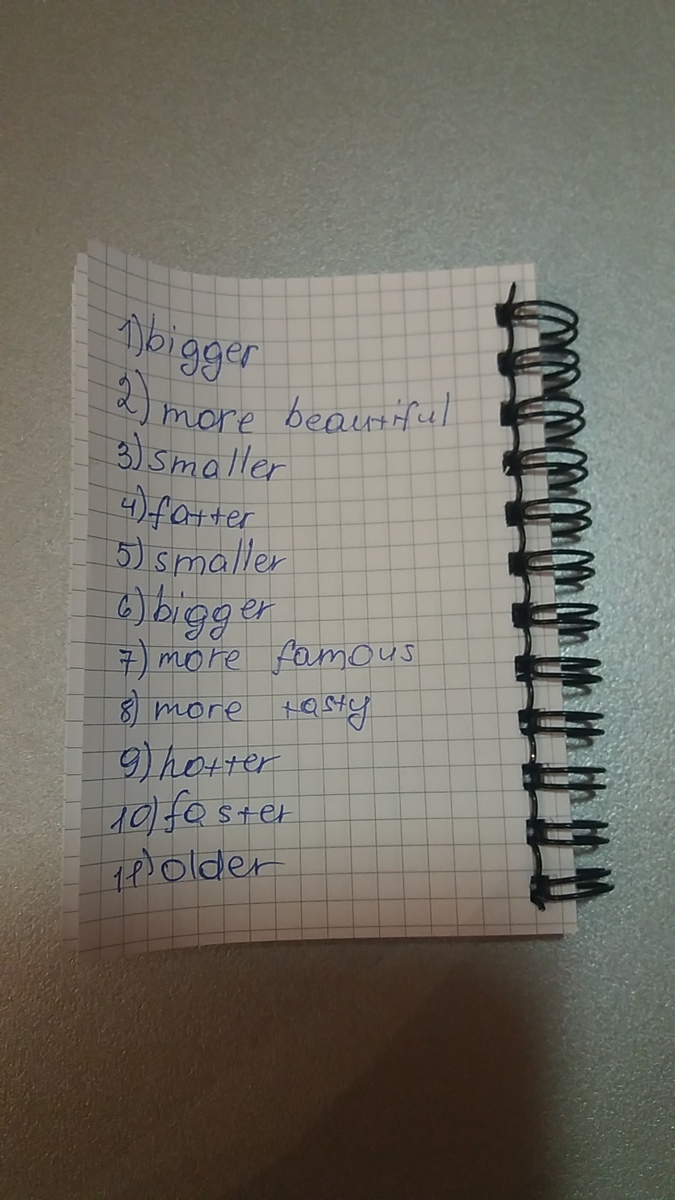 1) bigger
2) more beautiful
3) smaller
4) fatter
5) smaller
6) bigger
7) more famous
8) more tasty
9) hotter
10) faster
11) older